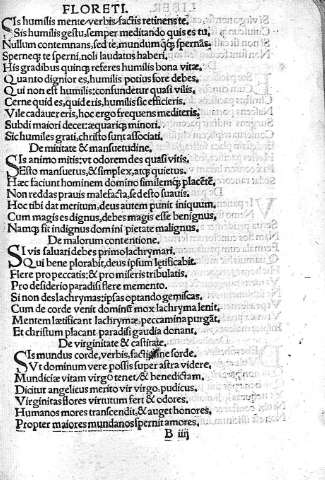 FLORETI.
SIs humilis mente·verbis·factis retinens te.
Sis humilis gestu, semper meditando quis es tu,
Nullum contemnans, sed te, mundum q̃q; spernãs.
Sperneq; te sperni, noli laudatus haberi.
His gradibus quinq; referes humilis bona vitæ,
Quanto dignior es, humilis potius fore debes,
Qui non est humilis; confundetur quasi vilis,
Cerne quid es, quid eris, humilis sic efficeris.
Vile cadauer eris, hoc ergo frequens mediteris,
Subdi maiori decet: æquariq; minori.
Sic humiles grati, christo sunt associati.
De mititate & mansuetudine,
SIs animo mitis: vt odorem des quasi vitis,
Esto mansuetus, & simplex, atq; quietus.
Hæc faciunt hominem domino similemq; placẽtẽ,
Non reddas prauis malefacta, sed esto suauis.
Hoc tibi dat meritum, deus autem punit iniquum,
Cum magis es dignus, debes magis esse benignus,
Namq; sit indignus domini pietate malignus,
De malorum contentione.
SI vis saluari debes primo lachrymari.
Qui bene plorabit, deus ipsum letificabit.
Flere pro peccatis; & pro miseris tribulatis,
Pro desiderio paradisi flere memento.
Si non des lachrymas; ipsas optando gemiscas,
Cum de corde venit dominũ mox lachryma lenit.
Mentem lætificant lachrymæ, peccamina purgãt.
Et christum placant·paradisi gaudia donant,
De virginitate & castitate.
SIs mundus corde, verbis, factis sine sorde.
Vt dominum vere possis super astra videre,
Mundiciæ vitam virgo tenet, & benedictam,
Dicitur angelicus merito vir virgo, pudicus,
Virginitas flores virtutum fert & odores,
Humanos mores transcendit, & auget honores,
Propter maiores mundanos spernit amores,
B iiij